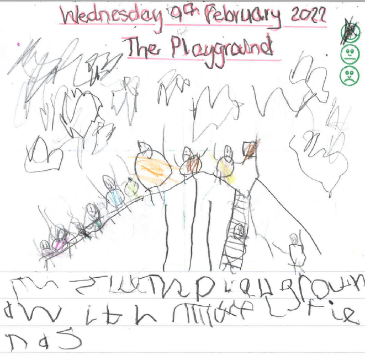 Wednesday 9th February 2022
The Playground
playgroun
dw ith fie
nds